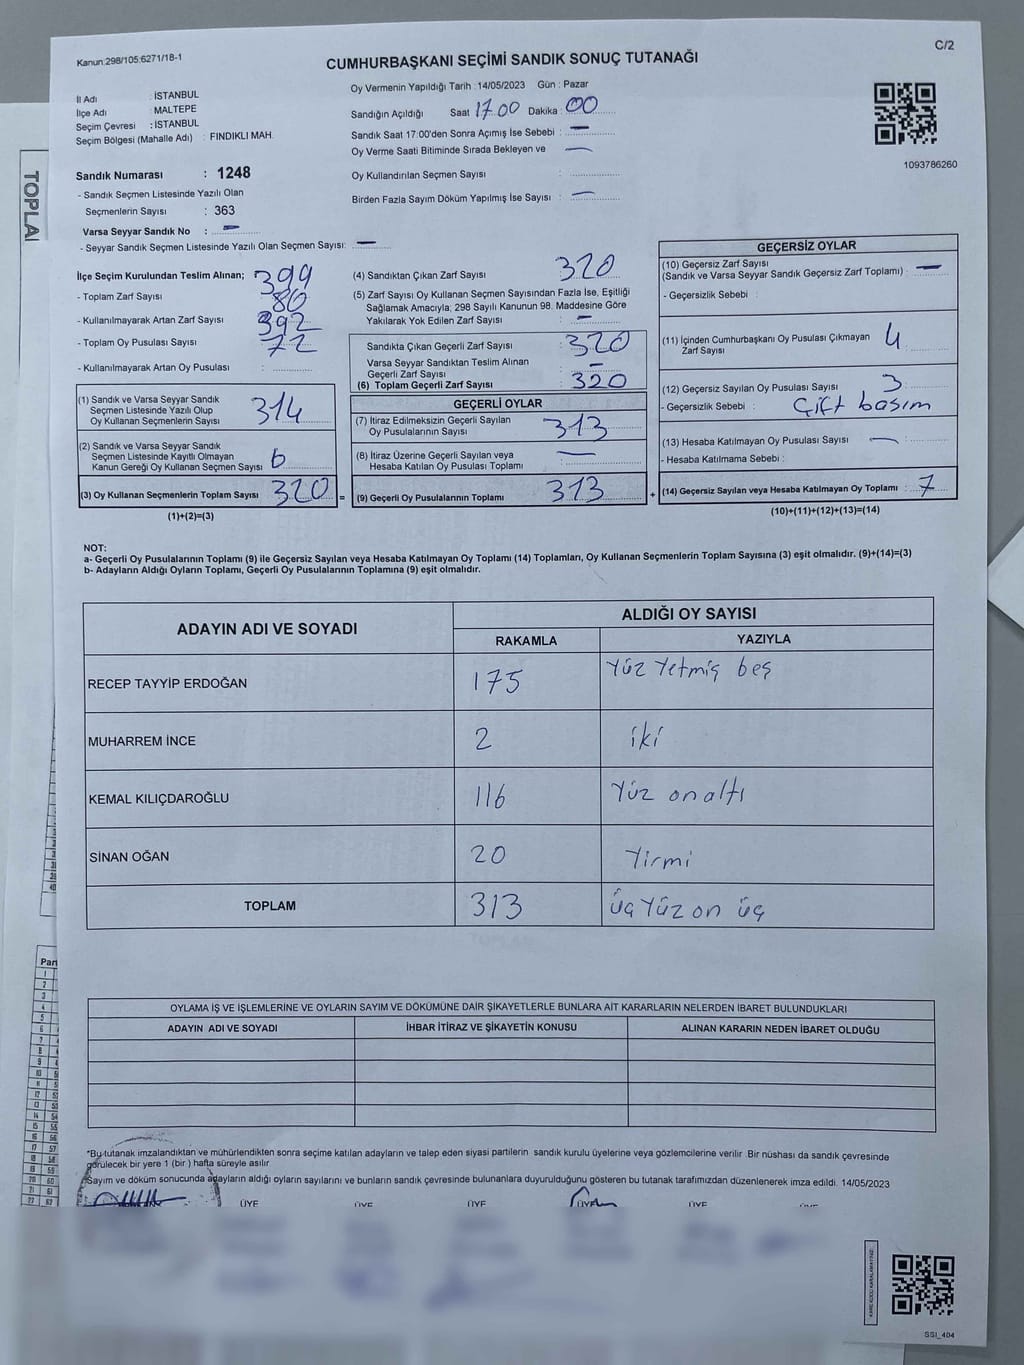 C/2
Kanun:298/105:6271/18-1
CUMHURBAŞKANI SEÇİMİ SANDIK SONUÇ TUTANAĞI
İl Adı : İSTANBUL
İlçe Adı : MALTEPE
Seçim Çevresi : İSTANBUL
Seçim Bölgesi (Mahalle Adı) : FINDIKLI MAH.
Oy Vermenin Yapıldığı Tarih :14/05/2023 Gün : Pazar
Sandığın Açıldığı Saat 17.00 Dakika 00
Sandık Saat 17:00'den Sonra Açımış İse Sebebi : —
Oy Verme Saati Bitiminde Sırada Bekleyen ve —
Oy Kullandırılan Seçmen Sayısı :
Birden Fazla Sayım Döküm Yapılmış İse Sayısı : —
1093786260
Sandık Numarası : 1248
- Sandık Seçmen Listesinde Yazılı Olan
Seçmenlerin Sayısı : 363
Varsa Seyyar Sandık No : —
- Seyyar Sandık Seçmen Listesinde Yazılı Olan Seçmen Sayısı: —
İlçe Seçim Kurulundan Teslim Alınan;
- Toplam Zarf Sayısı 399
- Kullanılmayarak Artan Zarf Sayısı 80
- Toplam Oy Pusulası Sayısı 392
- Kullanılmayarak Artan Oy Pusulası : 72
(1) Sandık ve Varsa Seyyar Sandık
Seçmen Listesinde Yazılı Olup
Oy Kullanan Seçmenlerin Sayısı 314
(2) Sandık ve Varsa Seyyar Sandık
Seçmen Listesinde Kayıtlı Olmayan
Kanun Gereği Oy Kullanan Seçmen Sayısı 6
(3) Oy Kullanan Seçmenlerin Toplam Sayısı 320 =
(1)+(2)=(3)
(4) Sandıktan Çıkan Zarf Sayısı : 320
(5) Zarf Sayısı Oy Kullanan Seçmen Sayısından Fazla İse, Eşitliği
Sağlamak Amacıyla; 298 Sayılı Kanunun 98. Maddesine Göre
Yakılarak Yok Edilen Zarf Sayısı : —
Sandıkta Çıkan Geçerli Zarf Sayısı : 320
Varsa Seyyar Sandıktan Teslim Alınan
Geçerli Zarf Sayısı : —
(6) Toplam Geçerli Zarf Sayısı : 320
GEÇERLİ OYLAR
(7) İtiraz Edilmeksizin Geçerli Sayılan
Oy Pusulalarının Sayısı : 313
(8) İtiraz Üzerine Geçerli Sayılan veya
Hesaba Katılan Oy Pusulası Toplamı : —
(9) Geçerli Oy Pusulalarının Toplamı : 313 +
GEÇERSİZ OYLAR
(10) Geçersiz Zarf Sayısı
(Sandık ve Varsa Seyyar Sandık Geçersiz Zarf Toplamı) : —
- Geçersizlik Sebebi :
(11) İçinden Cumhurbaşkanı Oy Pusulası Çıkmayan
Zarf Sayısı : 4
(12) Geçersiz Sayılan Oy Pusulası Sayısı : 3
- Geçersizlik Sebebi : Çift basım
(13) Hesaba Katılmayan Oy Pusulası Sayısı : —
- Hesaba Katılmama Sebebi :
(14) Geçersiz Sayılan veya Hesaba Katılmayan Oy Toplamı : 7
(10)+(11)+(12)+(13)=(14)
NOT:
a- Geçerli Oy Pusulalarının Toplamı (9) ile Geçersiz Sayılan veya Hesaba Katılmayan Oy Toplamı (14) Toplamları, Oy Kullanan Seçmenlerin Toplam Sayısına (3) eşit olmalıdır. (9)+(14)=(3)
b- Adayların Aldığı Oyların Toplamı, Geçerli Oy Pusulalarının Toplamına (9) eşit olmalıdır.
ADAYIN ADI VE SOYADI ALDIĞI OY SAYISI
RAKAMLA YAZIYLA
RECEP TAYYİP ERDOĞAN 175 Yüz Yetmiş beş
MUHARREM İNCE 2 iki
KEMAL KILIÇDAROĞLU 116 Yüz onaltı
SİNAN OĞAN 20 Yirmi
TOPLAM 313 üç Yüz on üç
OYLAMA İŞ VE İŞLEMLERİNE VE OYLARIN SAYIM VE DÖKÜMÜNE DAİR ŞİKAYETLERLE BUNLARA AİT KARARLARIN NELERDEN İBARET BULUNDUKLARI
ADAYIN ADI VE SOYADI İHBAR İTİRAZ VE ŞİKAYETİN KONUSU ALINAN KARARIN NEDEN İBARET OLDUĞU
*Bu tutanak imzalandıktan ve mühürlendikten sonra seçime katılan adayların ve talep eden siyasi partilerin sandık kurulu üyelerine veya gözlemcilerine verilir. Bir nüshası da sandık çevresinde
görülecek bir yere 1 (bir) hafta süreyle asılır
Sayım ve döküm sonucunda adayların aldığı oyların sayılarını ve bunların sandık çevresinde bulunanlara duyurulduğunu gösteren bu tutanak tarafımızdan düzenlenerek imza edildi. 14/05/2023
ÜYE ÜYE ÜYE ÜYE ÜYE ÜYE
SSI_404
TOPLA